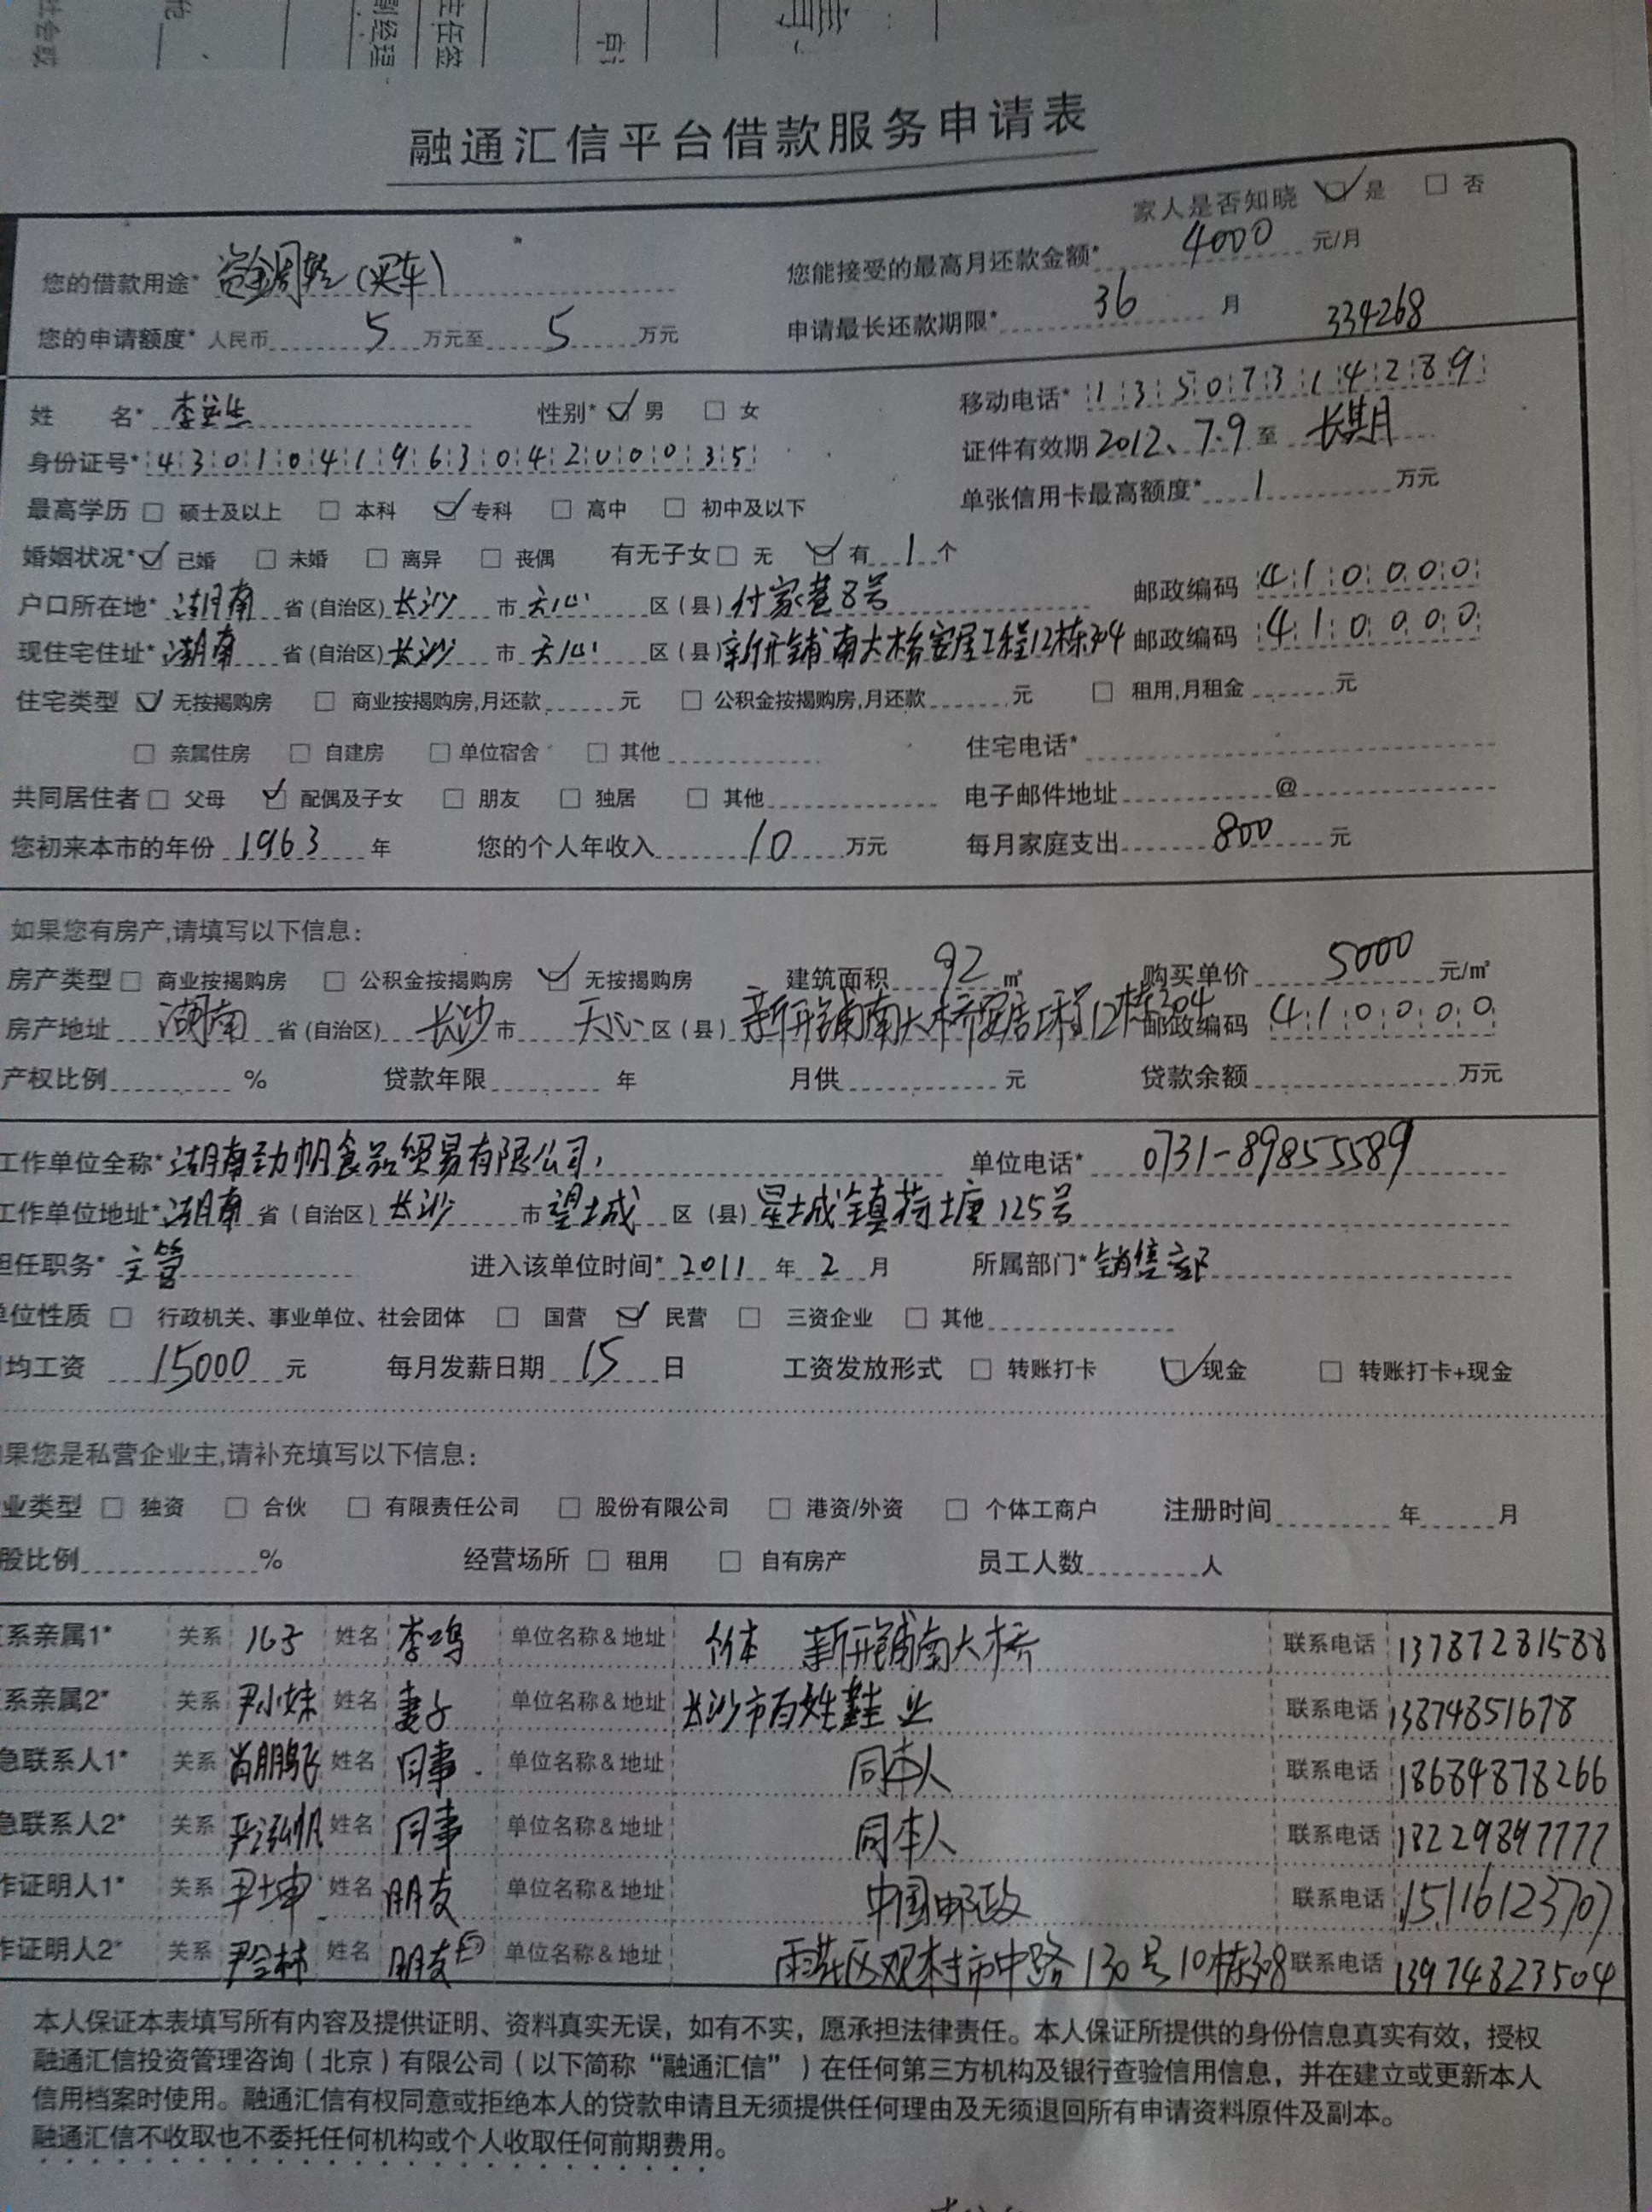 融通汇信平台借款服务申请表
家人是否知晓 ☑ 是 □ 否
您的借款用途* 资金周转(买车) 您能接受的最高月还款金额* 4000 元/月
您的申请额度* 人民币 5 万元至 5 万元 申请最长还款期限* 36 月 334268
姓 名* 李 性别* ☑ 男 □ 女 移动电话* 13507314289
身份证号* 430104196304200035 证件有效期 2012、7.9 至 长期
最高学历 □ 硕士及以上 □ 本科 ☑ 专科 □ 高中 □ 初中及以下 单张信用卡最高额度* 1 万元
婚姻状况* ☑ 已婚 □ 未婚 □ 离异 □ 丧偶 有无子女 □ 无 ☑ 有 1 个
户口所在地* 湖南 省(自治区) 长沙 市 天心 区(县) 付家巷8号 邮政编码 410000
现住宅住址* 湖南 省(自治区) 长沙 市 天心 区(县) 新开铺南大桥安居工程12栋304 邮政编码 410000
住宅类型 ☑ 无按揭购房 □ 商业按揭购房,月还款 元 □ 公积金按揭购房,月还款 元 □ 租用,月租金 元
□ 亲属住房 □ 自建房 □ 单位宿舍 □ 其他 住宅电话*
共同居住者 □ 父母 ☑ 配偶及子女 □ 朋友 □ 独居 □ 其他 电子邮件地址 @
您初来本市的年份 1963 年 您的个人年收入 10 万元 每月家庭支出 800 元
如果您有房产,请填写以下信息:
房产类型 □ 商业按揭购房 □ 公积金按揭购房 ☑ 无按揭购房 建筑面积 92 ㎡ 购买单价 5000 元/㎡
房产地址 湖南 省(自治区) 长沙 市 天心 区(县) 新开铺南大桥安居工程12栋304 邮政编码 410000
产权比例 % 贷款年限 年 月供 元 贷款余额 万元
工作单位全称* 湖南劲帆食品贸易有限公司 单位电话* 0731-89855589
工作单位地址* 湖南 省(自治区) 长沙 市 望城 区(县) 星城镇荷塘125号
担任职务* 主管 进入该单位时间* 2011 年 2 月 所属部门* 销售部
单位性质 □ 行政机关、事业单位、社会团体 □ 国营 ☑ 民营 □ 三资企业 □ 其他
均工资 15000 元 每月发薪日期 15 日 工资发放形式 □ 转账打卡 ☑ 现金 □ 转账打卡+现金
果您是私营企业主,请补充填写以下信息:
业类型 □ 独资 □ 合伙 □ 有限责任公司 □ 股份有限公司 □ 港资/外资 □ 个体工商户 注册时间 年 月
股比例 % 经营场所 □ 租用 □ 自有房产 员工人数 人
系亲属1* 关系 父子 姓名 李鸣 单位名称&地址 新开铺南大桥 联系电话 13787281588
系亲属2* 关系 尹小妹 姓名 妻子 单位名称&地址 长沙市百姓鞋业 联系电话 13874851678
急联系人1* 关系 肖鹏飞 姓名 同事 单位名称&地址 同本人 联系电话 18684878266
急联系人2* 关系 严泓帆 姓名 同事 单位名称&地址 同本人 联系电话 18229897777
作证明人1* 关系 尹坤 姓名 朋友 单位名称&地址 中国邮政 联系电话 15116123707
作证明人2* 关系 尹金林 姓名 朋友 单位名称&地址 雨花区观村市中路130号10栋308 联系电话 13974823504
本人保证本表填写所有内容及提供证明、资料真实无误，如有不实，愿承担法律责任。本人保证所提供的身份信息真实有效，授权
融通汇信投资管理咨询（北京）有限公司（以下简称“融通汇信”）在任何第三方机构及银行查验信用信息，并在建立或更新本人
信用档案时使用。融通汇信有权同意或拒绝本人的贷款申请且无须提供任何理由及无须退回所有申请资料原件及副本。
融通汇信不收取也不委托任何机构或个人收取任何前期费用。